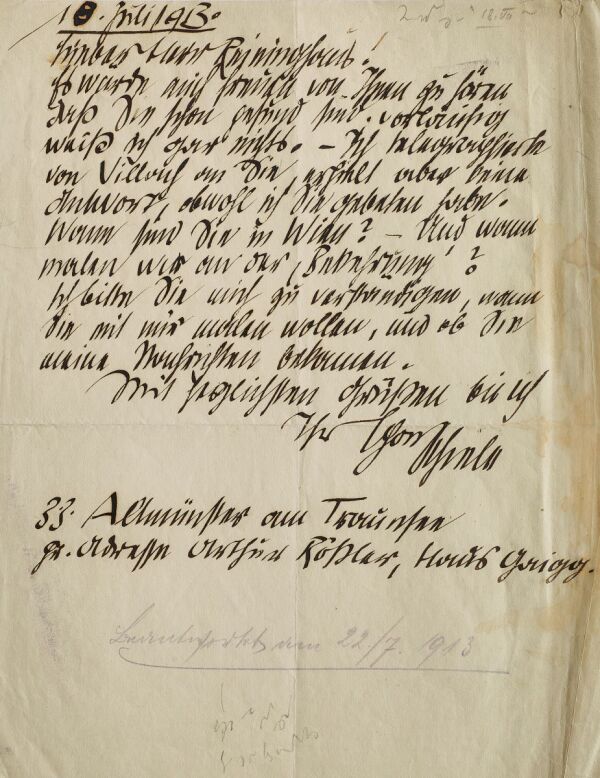 18. Juli 1913.
18. VII
Lieber Herr Reininghaus!
Es würde mich freuen von Ihnen zu hören
daß Sie schon gesund sind. vorläufig
weiß ich gar nichts. – Ich telegraphierte
von Villach an Sie, erhielt aber keine
Antwort, obwohl ich Sie gebeten habe.
Wann sind Sie in Wien? – Und wann
malen wir an der „Bekehrung"?
Ich bitte Sie mich zu verständigen, wann
Sie mit mir malen wollen, und ob Sie
meine Nachrichten bekamen.
Mit herzlichsten Grüßen bin ich
Ihr Egon
Schiele
zz. Altmünster am Traunsee
pr. Adresse Arthur Rößler, Haus Gaigg.
Beantwortet am 22./7. 1913